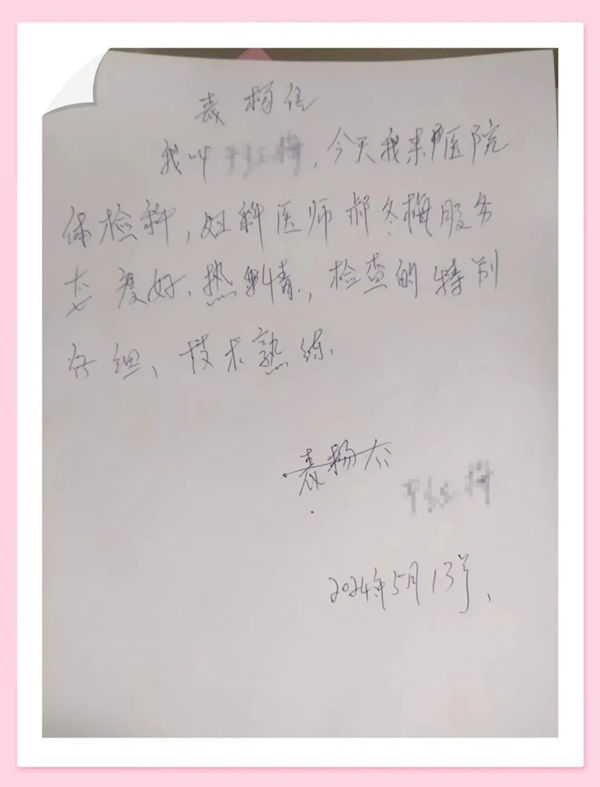 表扬信
我叫，今天我来医院
体检科，妇科医师郝冬梅服务
态度好、热情，检查的特别
仔细、技术熟练.
表扬人
2024年5月13号、